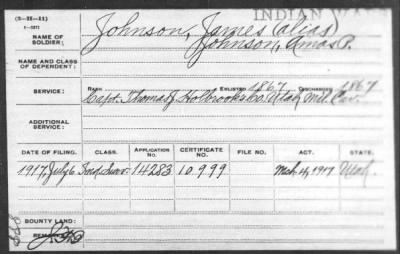 INDIAN WA
(3-II-11)
NAME OF SOLDIER:
Johnson, James (alias)
Johnson, Amas P.
NAME AND CLASS OF DEPENDENT:
SERVICE:
RANK ENLISTED 1867 DISCHARGED 1867
Capt. Thomas J. Holbrook's Co. Utah Mil. Cav.
ADDITIONAL SERVICE:
DATE OF FILING. CLASS. APPLICATION NO. CERTIFICATE NO. FILE NO. ACT. STATE.
1917, July 6 Ind. Surv. 14283 10999 Mch. 4, 1917 Utah.
BOUNTY LAND:
REMARKS: